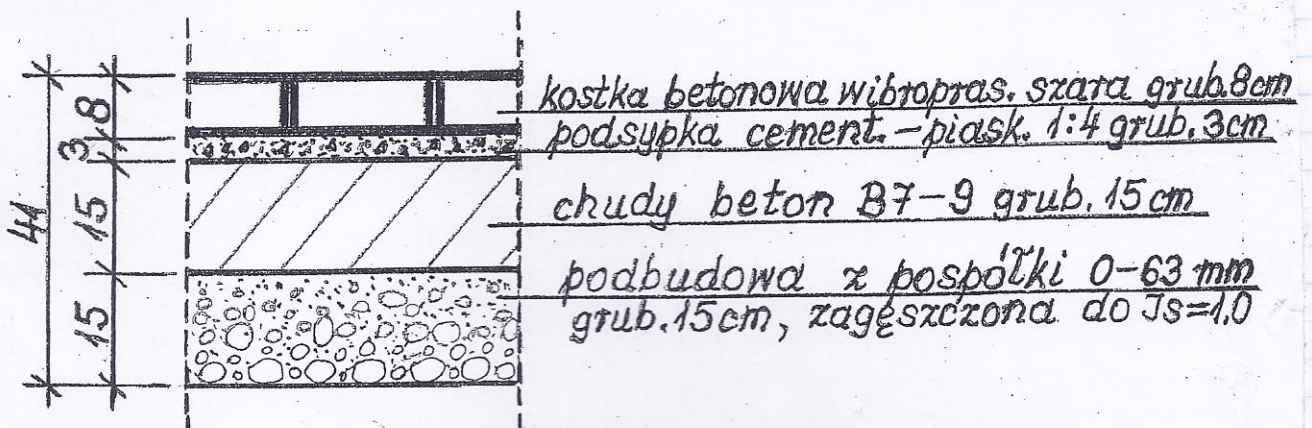 kostka betonowa wibropras. szara grub. 8cm
podsypka cement. - piask. 1:4 grub. 3cm
chudy beton B7-9 grub. 15 cm
podbudowa z pospółki 0-63 mm
grub. 15cm, zagęszczona do Js=1,0
41
8
3
15
15